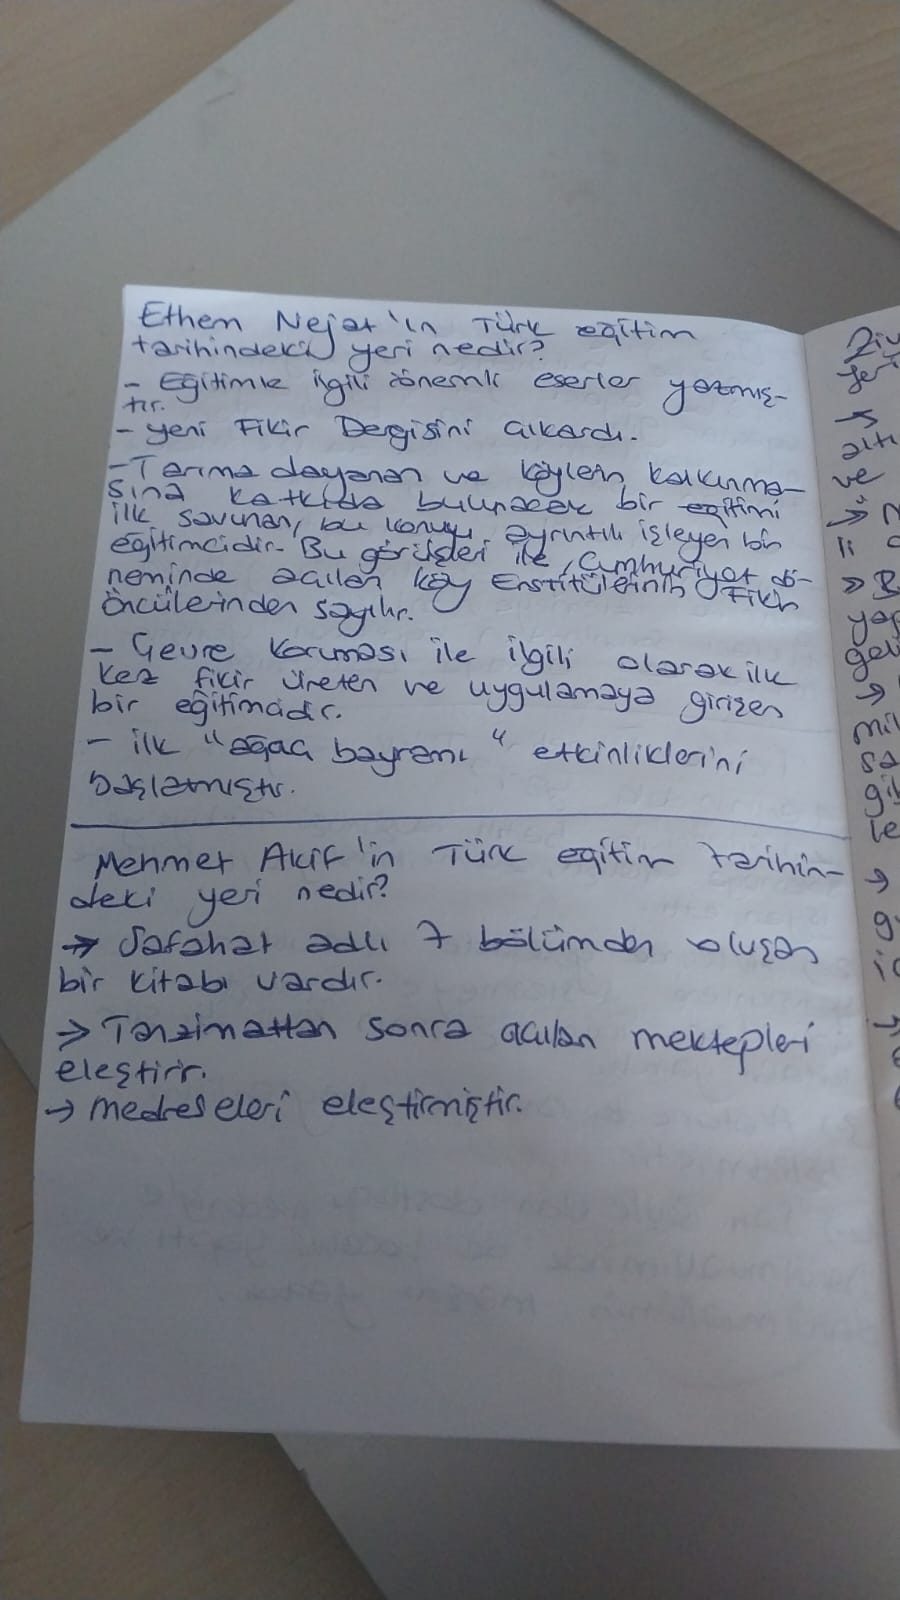 Ethem Nejat'ın Türk eğitim
tarihindeki yeri nedir?
- Eğitimle ilgili önemli eserler yazmış-
tır.
- Yeni Fikir Dergisini çıkardı.
- Tarıma dayanan ve köylerin kalkınma-
sına katkıda bulunacak bir eğitimi
ilk savunan, bu konuyu ayrıntılı işleyen bir
eğitimcidir. Bu görüşleri ile, Cumhuriyet dö-
neminde açılan Köy Enstitülerinin Fikir
öncülerinden sayılır.
- Çevre koruması ile ilgili olarak ilk
kez fikir üreten ve uygulamaya girişen
bir eğitimcidir.
- İlk "ağaç bayramı" etkinliklerini
başlatmıştır.
Mehmet Akif'in Türk eğitim tarihin-
deki yeri nedir?
→ Safahat adlı 7 bölümden oluşan
bir kitabı vardır.
→ Tanzimattan sonra açılan mektepleri
eleştirir.
→ medreseleri eleştirmiştir.